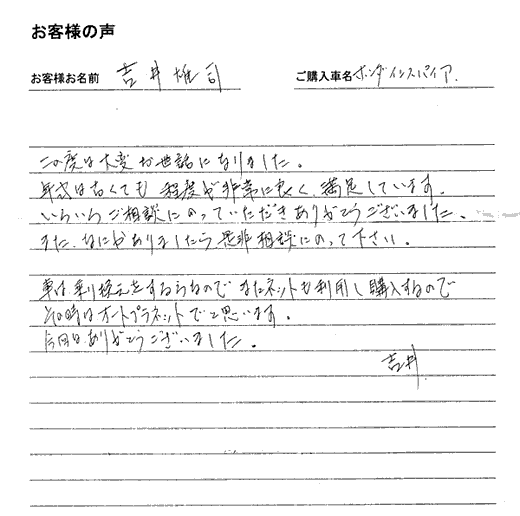 お客様の声
お客様お名前 吉井雄司 ご購入車名 ホンダインスパイア.
この度は大変お世話になりました。
年式は古くても程度が非常に良く、満足しています。
いろいろご相談にのっていただきありがとうございました。
また、なにかありましたら是非相談にのって下さい。
車は乗り換えをするうなので またネットも利用し購入するので
その時はオートプラネットでと思います。
今回はありがとうございました。
吉井